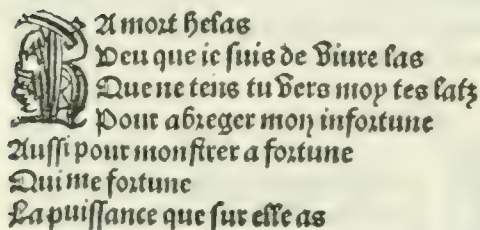 LA mort helas
Veu que ie suis de viure las
Que ne tens tu vers moy tes latz
Pour abreger mon infortune
Aussi pour monstrer a fortune
Qui me fortune
La puissance que sur elle as